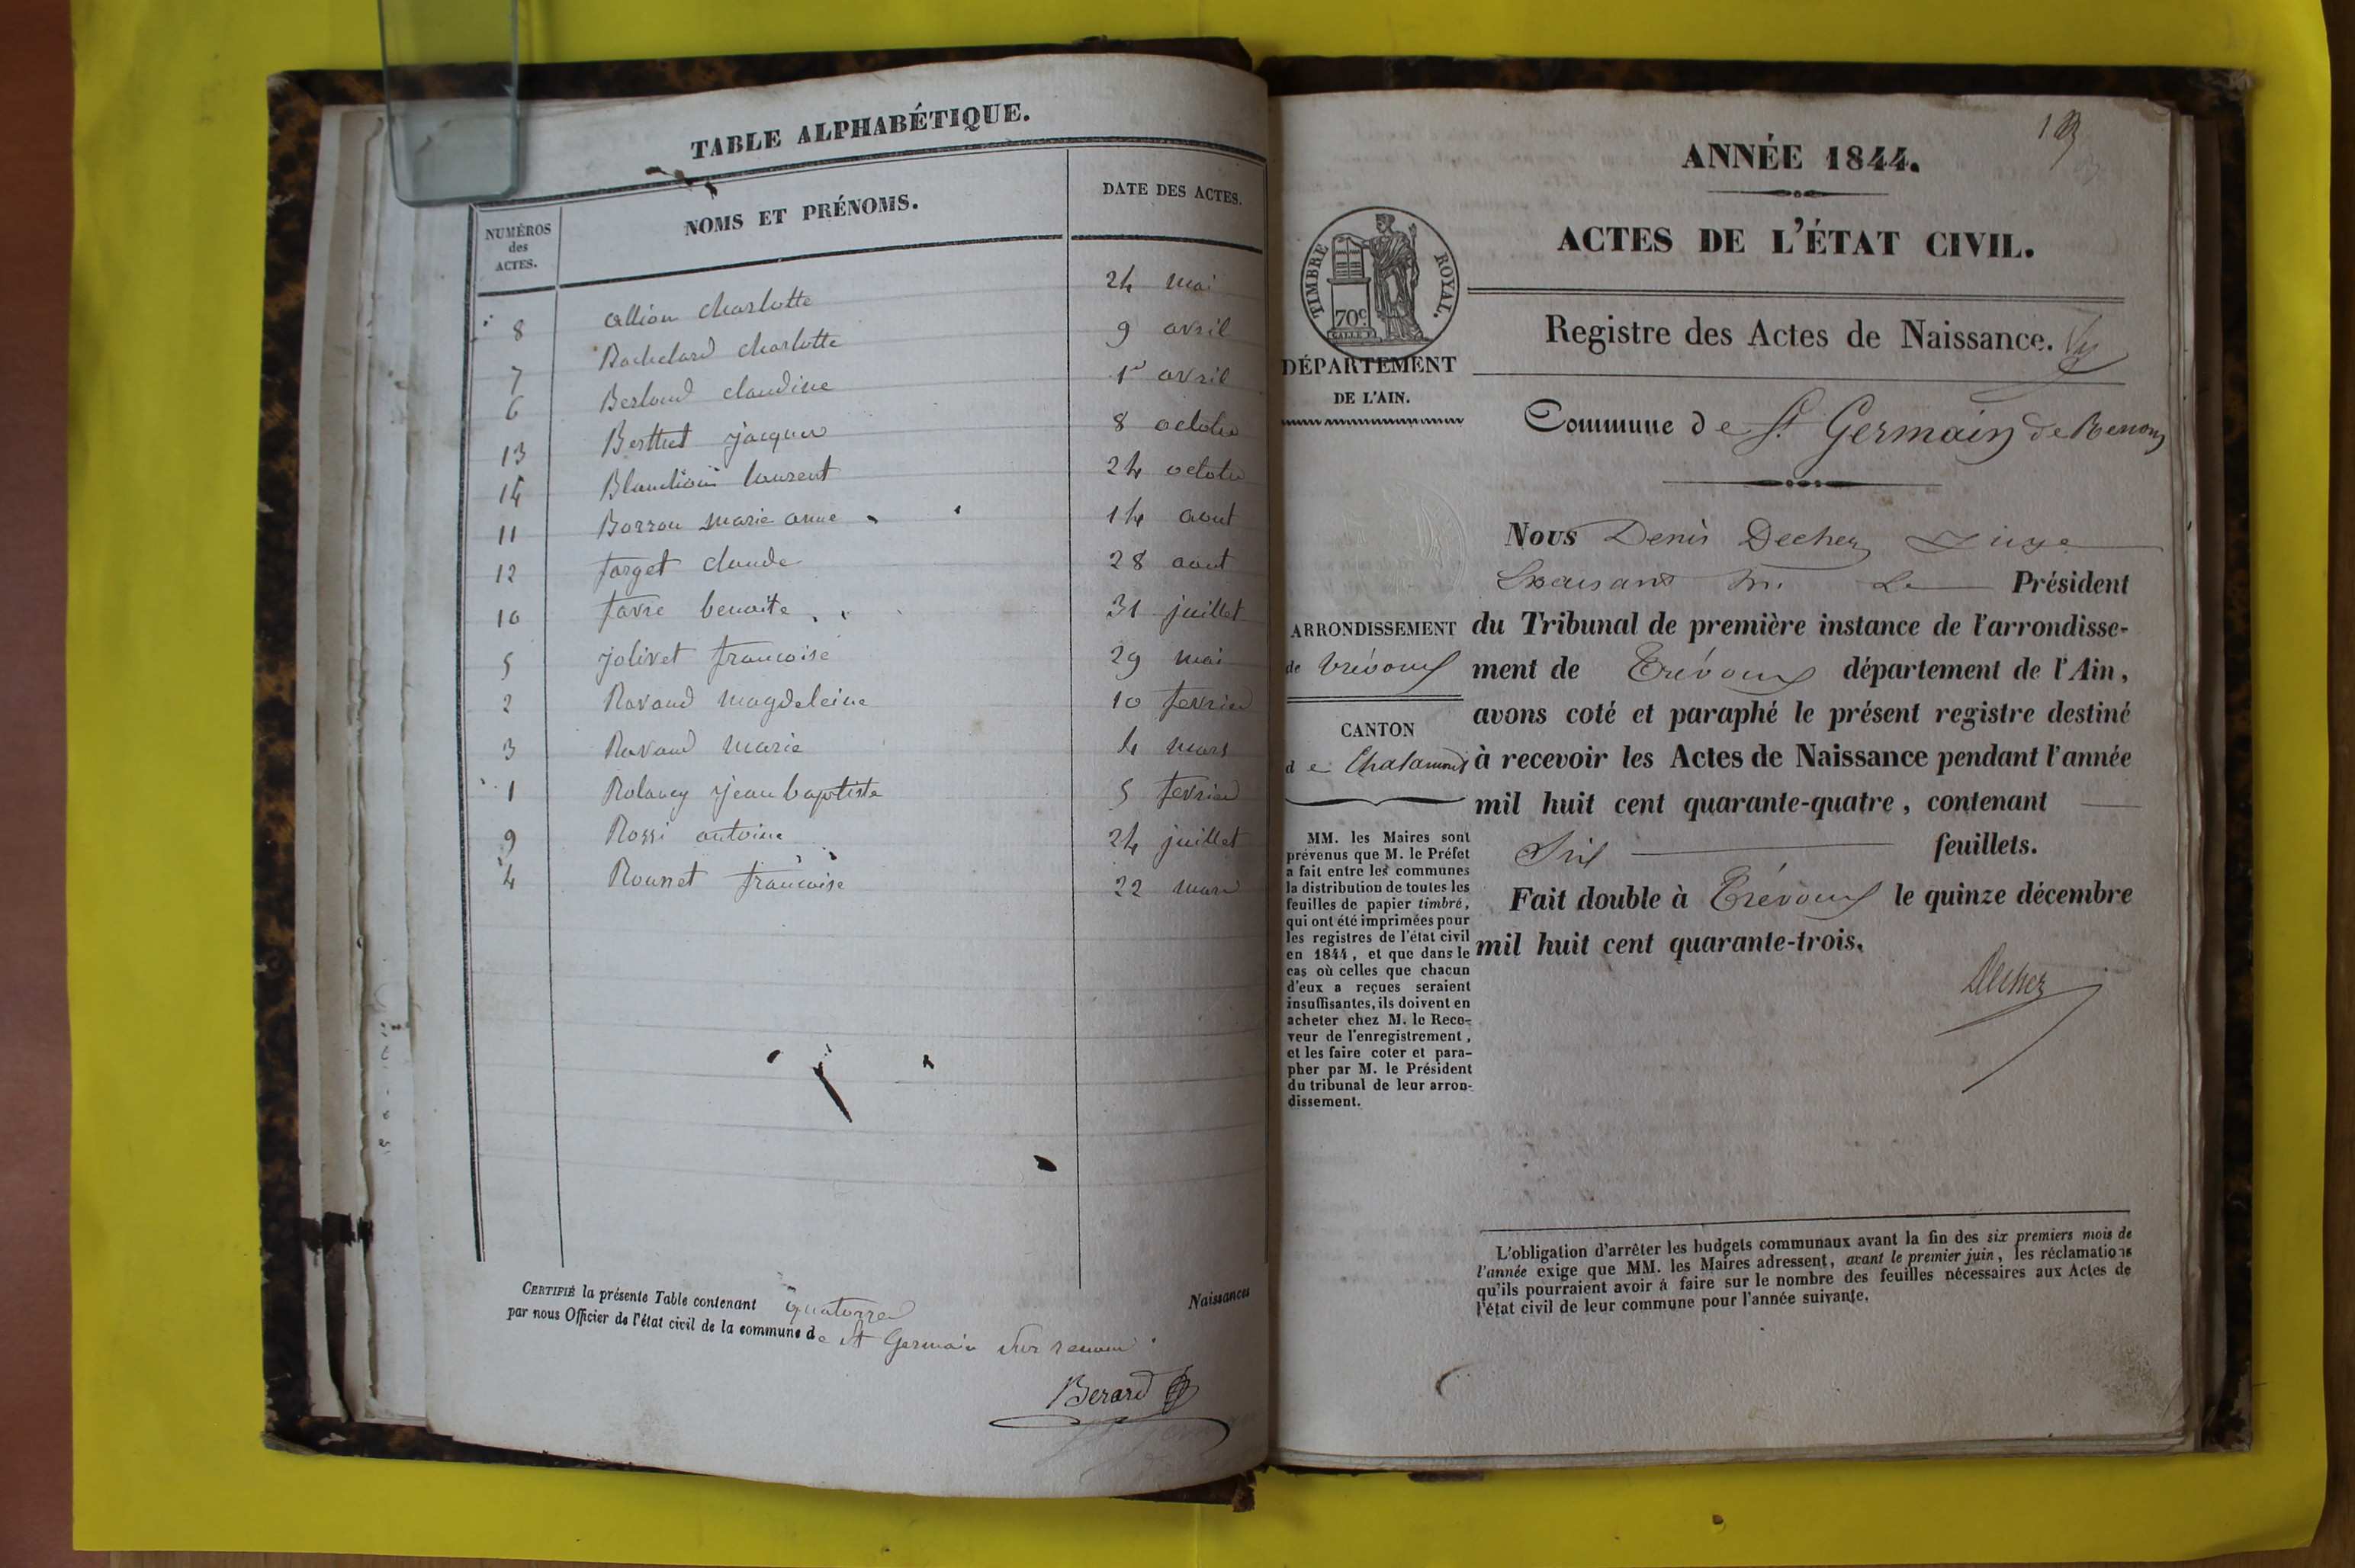 TABLE ALPHABÉTIQUE.
NUMÉROS des ACTES. NOMS ET PRÉNOMS. DATE DES ACTES.
8 allion charlotte 24 mai
7 Bachelard charlotte 9 avril
6 Berloud claudine 1r avril
13 Berthet jacques 8 octobre
14 laurent 24 octobre
11 Borron marie anne 14 aout
12 farget claude 28 aout
10 favre benoite 31 juillet
5 jolivet francoise 29 mai
2 Ravaud magdeleine 10 fevrier
3 Ravaud marie 4 mars
1 Rolancy jean baptiste 5 fevrier
9 Rossi antoine 24 juillet
4 Rousset francoise 22 mars
CERTIFIÉ la présente Table contenant quatorze Naissances
par nous Officier de l'état civil de la commune de St Germain sur renom
Berard
ANNÉE 1844.
ACTES DE L'ÉTAT CIVIL.
TIMBRE ROYAL.
70c
Registre des Actes de Naissance.
DÉPARTEMENT
DE L'AIN.
Commune de St Germain de Renom
Nous Denis Decher Juge
le Président
ARRONDISSEMENT
de trévoux
CANTON
de Chalamont
du Tribunal de première instance de l'arrondisse-
ment de Trévoux département de l'Ain,
avons coté et paraphé le présent registre destiné
à recevoir les Actes de Naissance pendant l'année
mil huit cent quarante-quatre, contenant
Six feuillets.
Fait double à Trévoux le quinze décembre
mil huit cent quarante-trois.
Decher
MM. les Maires sont
prévenus que M. le Préfet
a fait entre les communes
la distribution de toutes les
feuilles de papier timbré,
qui ont été imprimées pour
les registres de l'état civil
en 1844, et que dans le
cas où celles que chacun
d'eux a reçues seraient
insuffisantes, ils doivent en
acheter chez M. le Rece-
veur de l'enregistrement,
et les faire coter et para-
pher par M. le Président
du tribunal de leur arron-
dissement.
L'obligation d'arrêter les budgets communaux avant la fin des six premiers mois de
l'année exige que MM. les Maires adressent, avant le premier juin, les réclamations
qu'ils pourraient avoir à faire sur le nombre des feuilles nécessaires aux Actes de
l'état civil de leur commune pour l'année suivante.